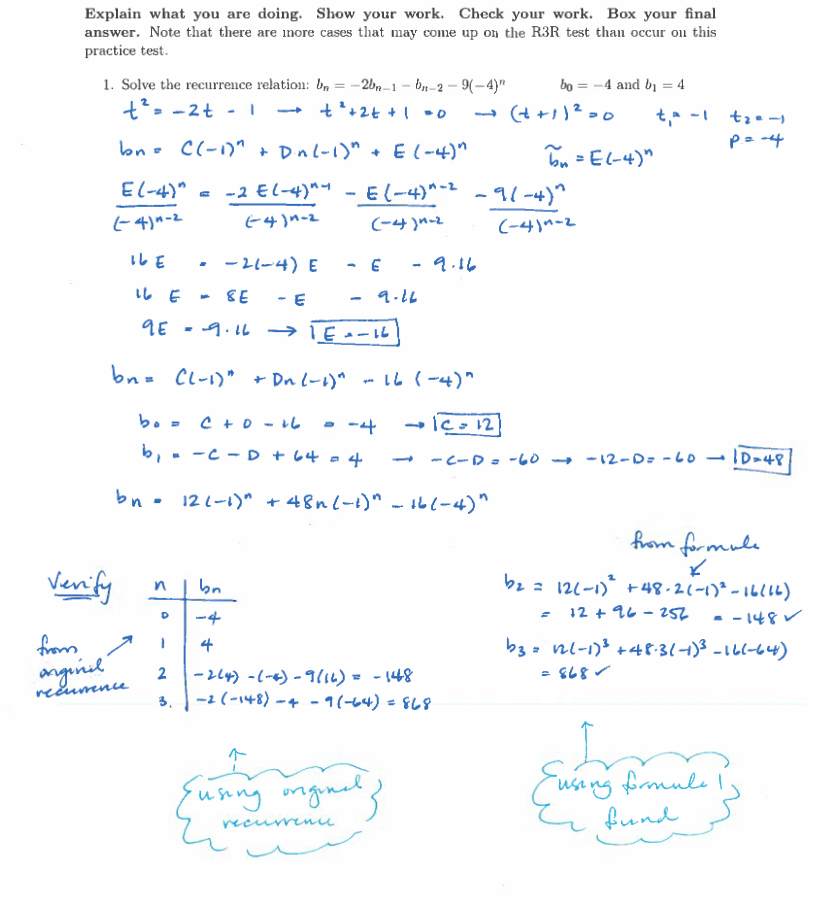 Explain what you are doing. Show your work. Check your work. Box your final
answer. Note that there are more cases that may come up on the R3R test than occur on this
practice test.
1. Solve the recurrence relation: bₙ = −2bₙ₋₁ − bₙ₋₂ − 9(−4)ⁿ b₀ = −4 and b₁ = 4
t² = -2t - 1 → t²+2t+1 = 0 → (t+1)² = 0 t₁ = -1 t₂ = -1
p = -4
bn = C(-1)ⁿ + Dn(-1)ⁿ + E(-4)ⁿ b̃n = E(-4)ⁿ
E(-4)ⁿ = -2 E(-4)ⁿ⁻¹ - E(-4)ⁿ⁻² - 9(-4)ⁿ
(-4)ⁿ⁻² (-4)ⁿ⁻² (-4)ⁿ⁻² (-4)ⁿ⁻²
16 E = -2(-4) E - E - 9·16
16 E = 8E - E - 9·16
9E = -9·16 → E = -16
bn = C(-1)ⁿ + Dn(-1)ⁿ - 16 (-4)ⁿ
b₀ = C + 0 - 16 = -4 → C = 12
b₁ = -C - D + 64 = 4 → -C-D = -60 → -12-D = -60 → D=48
bn = 12(-1)ⁿ + 48n(-1)ⁿ - 16(-4)ⁿ
from formula
Verify
n bn
0 -4
1 4
2 -2(4) -(-4) - 9(16) = -148
3. -2(-148) - 4 - 9(-64) = 868
from
original
recurrence
b₂ = 12(-1)² + 48·2(-1)² - 16(16)
= 12 + 96 - 256 = -148 ✓
b₃ = 12(-1)³ + 48·3(-1)³ - 16(-64)
= 868 ✓
using original
recurrence
using formula I
found